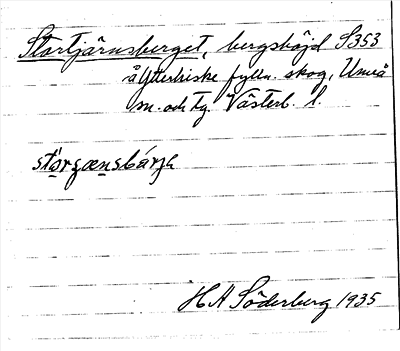 Stortjärnsberget, bergshöjd S353
å Ytterbiske fylln. skog, Umeå
sn. och tg. Västerb. l.
stòrʒænsbárja
H A Söderberg 1935